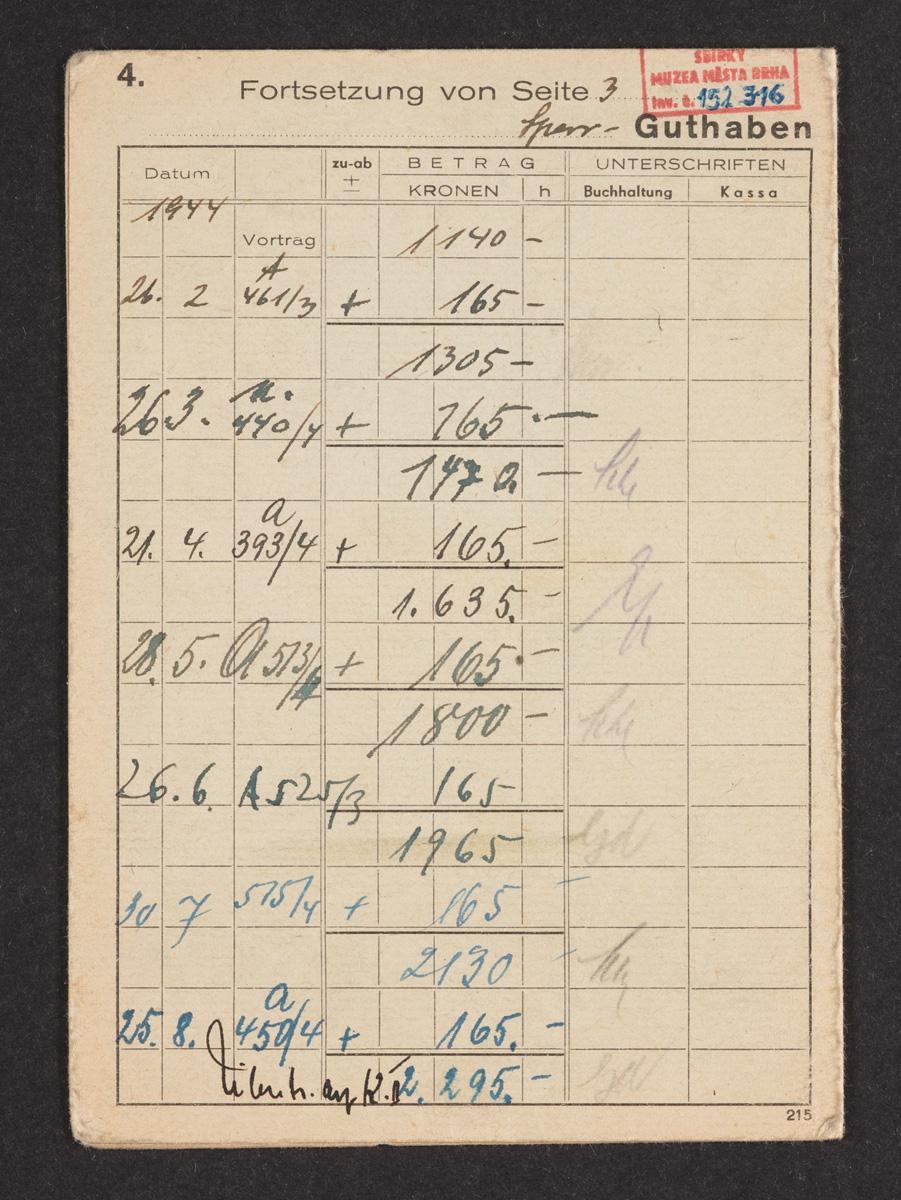 4.
SBÍRKY
MUZEA MĚSTA BRNA
Inv. č. 152 316
Fortsetzung von Seite 3
Sperr- Guthaben
Datum zu-ab + BETRAG UNTERSCHRIFTEN
KRONEN h Buchhaltung Kassa
1944
Vortrag 1140 -
A
26. 2 461/3 + 165 -
1305 -
A.
26.3. 440/4 + 165.-
1470. -
a
21. 4. 393/4 + 165. -
1.635. -
28. 5. A 513/4 + 165 -
1800 -
26.6. A 525/3 165 -
1965
30 7 515/4 + 165 -
2130 -
a
25. 8. 450/4 + 165. -
Übertr. auf K. II 2.295. -
215